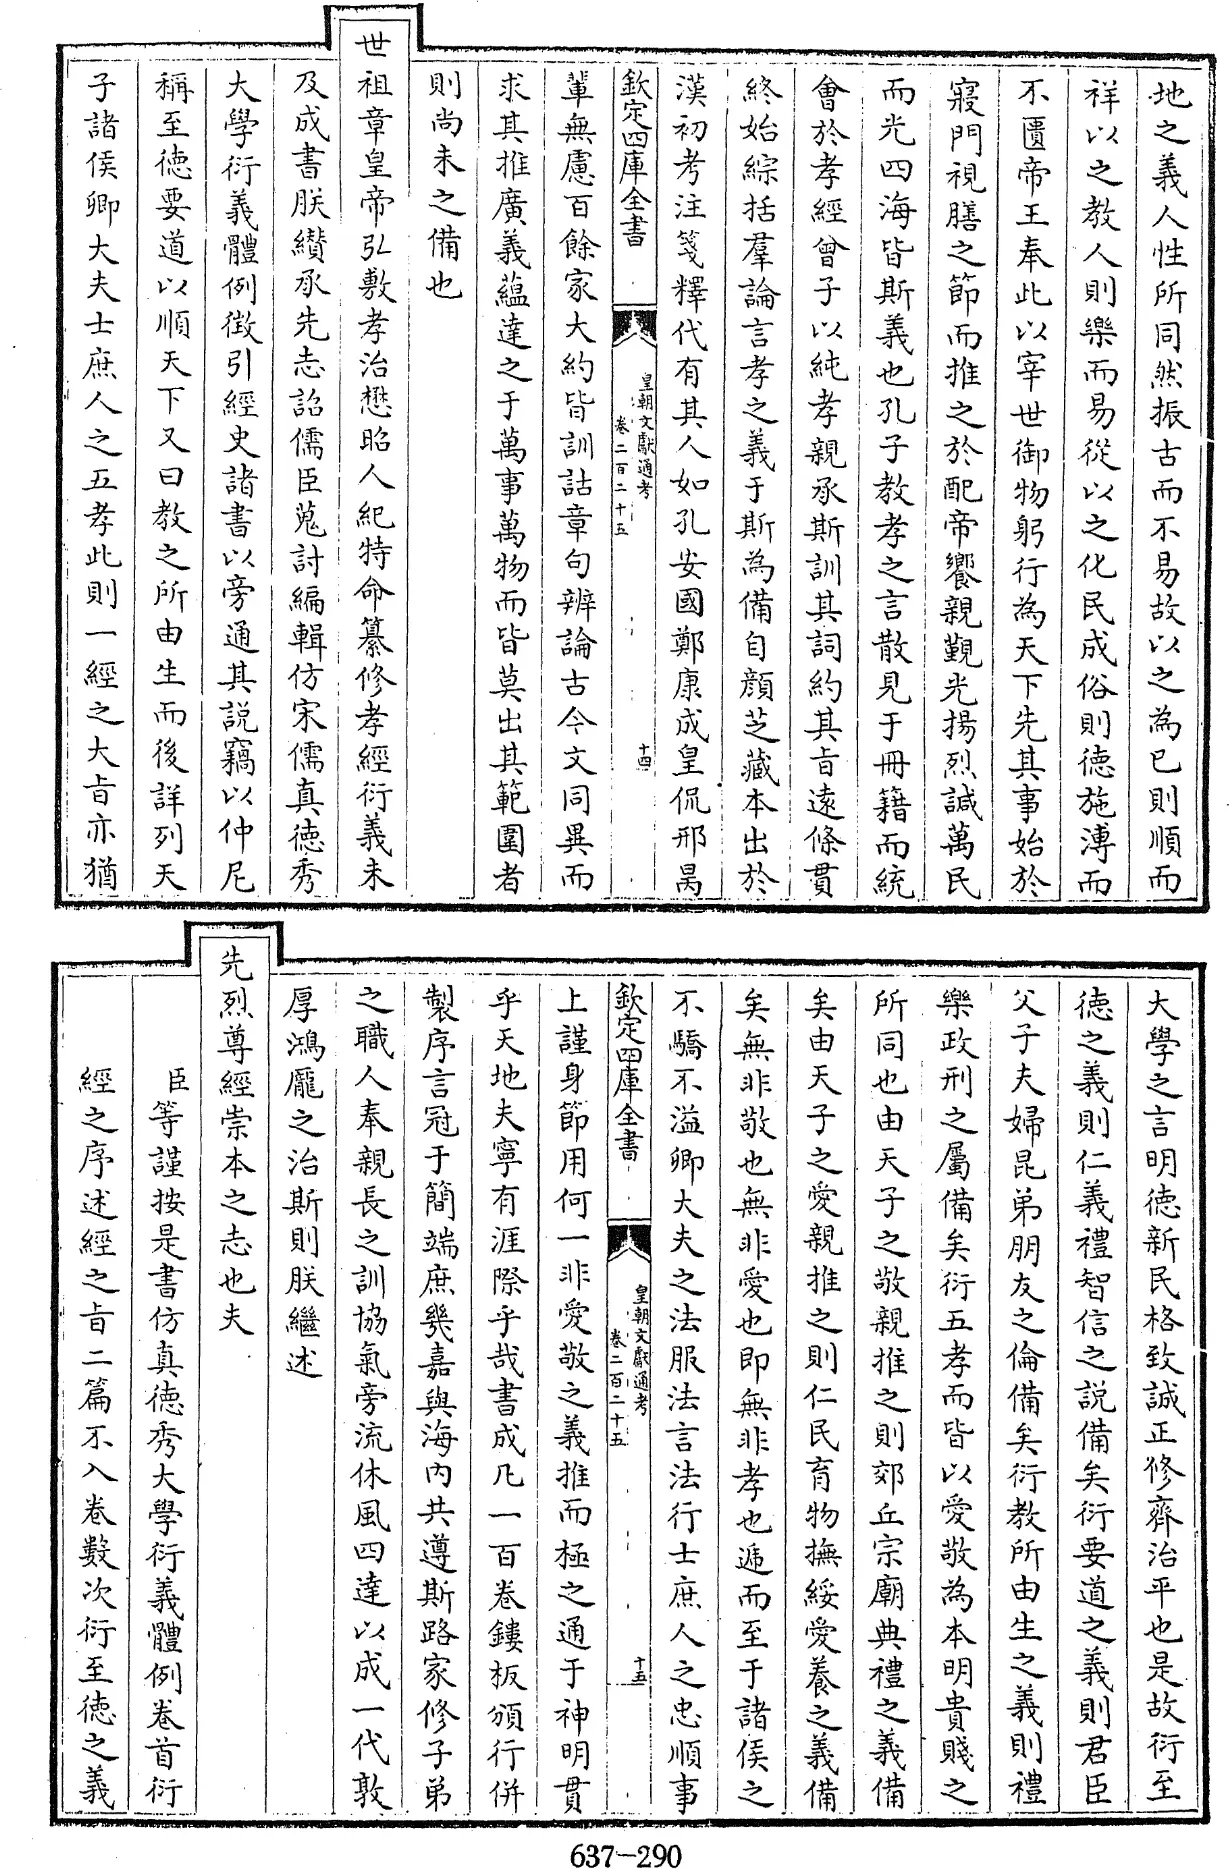 地之義人性所同然振古而不易故以之為已則順而
祥以之教人則樂而易從以之化民成俗則德施溥而
不匱帝王奉此以宰世御物躬行為天下先其事始於
寢門視膳之節而推之於配帝饗親覲光揚烈諴萬民
而光四海皆斯義也孔子教孝之言散見于冊籍而統
會於孝經曾子以純孝親承斯訓其詞約其旨遠條貫
終始綜括羣論言孝之義于斯為備自顔芝藏本出於
漢初考注箋釋代有其人如孔安國鄭康成皇侃邢昺
欽定四庫全書
皇朝文獻通考
卷二百二十五
十四
輩無慮百餘家大約皆訓詁章句辨論古今文同異而
求其推廣義蘊達之于萬事萬物而皆莫出其範圍者
則尚未之備也
世祖章皇帝弘敷孝治懋昭人紀特命纂修孝經衍義未
及成書朕纘承先志詔儒臣蒐討編輯仿宋儒真德秀
大學衍義體例徴引經史諸書以旁通其説竊以仲尼
稱至德要道以順天下又曰教之所由生而後詳列天
子諸侯卿大夫士庶人之五孝此則一經之大旨亦猶
大學之言明德新民格致誠正修齊治平也是故衍至
德之義則仁義禮智信之説備矣衍要道之義則君臣
父子夫婦昆弟朋友之倫備矣衍教所由生之義則禮
樂政刑之屬備矣衍五孝而皆以愛敬為本明貴賤之
所同也由天子之敬親推之則郊丘宗廟典禮之義備
矣由天子之愛親推之則仁民育物撫綏愛養之義備
矣無非敬也無非愛也即無非孝也遞而至于諸侯之
不驕不溢卿大夫之法服法言法行士庶人之忠順事
欽定四庫全書
皇朝文獻通考
卷二百二十五
十五
上謹身節用何一非愛敬之義推而極之通于神明貫
乎天地夫寧有涯際乎哉書成凡一百卷鏤板頒行併
製序言冠于簡端庶幾嘉與海内共遵斯路家修子弟
之職人奉親長之訓協氣旁流休風四達以成一代敦
厚鴻龎之治斯則朕繼述
先烈尊經崇本之志也夫
臣等謹按是書仿真德秀大學衍義體例卷首衍
經之序述經之旨二篇不入卷數次衍至德之義
637-290